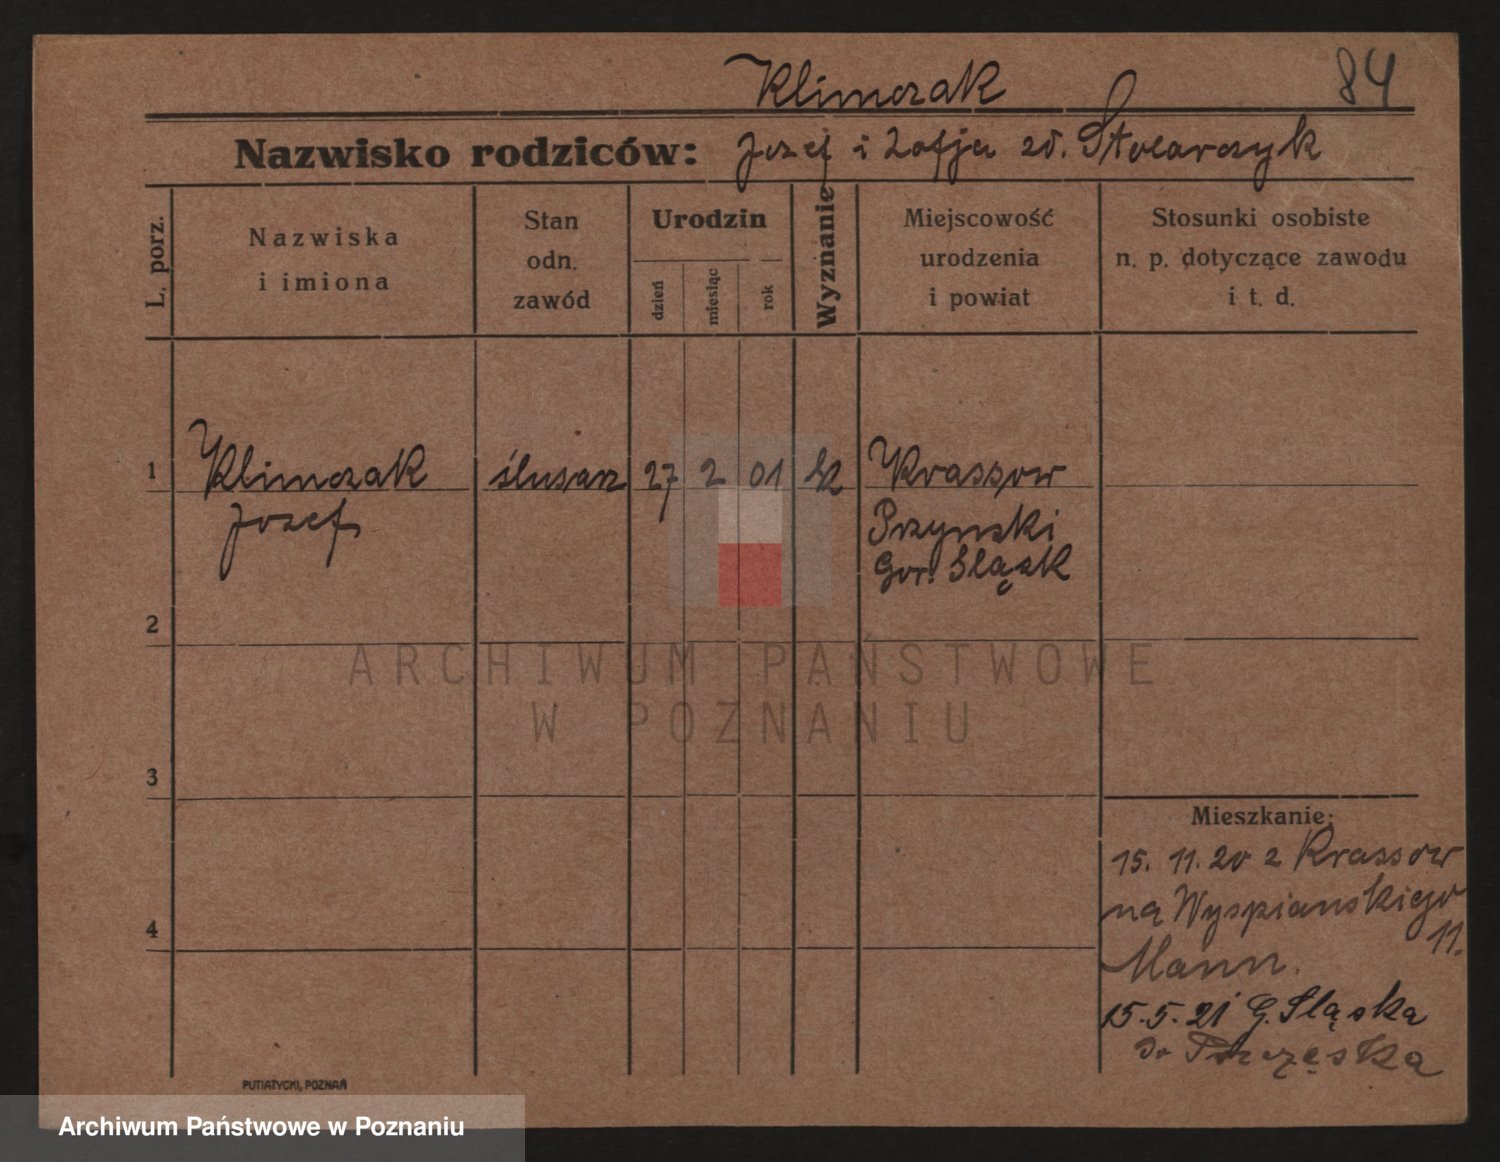 Klimczak 84
Nazwisko rodziców: Jozef i Zofja zd. Stolarczyk
L. porz.
Nazwiska
i imiona
Stan
odn.
zawód
Urodzin
dzień
miesiąc
rok
Wyznanie
Miejscowość
urodzenia
i powiat
Stosunki osobiste
n. p. dotyczące zawodu
i t. d.
1 Klimczak ślusarz 27 2 01 Krassow
Jozef
Gor. Sląsk
2
3
4
Mieszkanie:
15. 11. 20 z Krassow
na Wyspianskiego
11.
Mann.
15.5.21 G. Sląska
PUTIATYCKI, POZNAŃ
ARCHIWUM PAŃSTWOWE
W POZNANIU
Archiwum Państwowe w Poznaniu